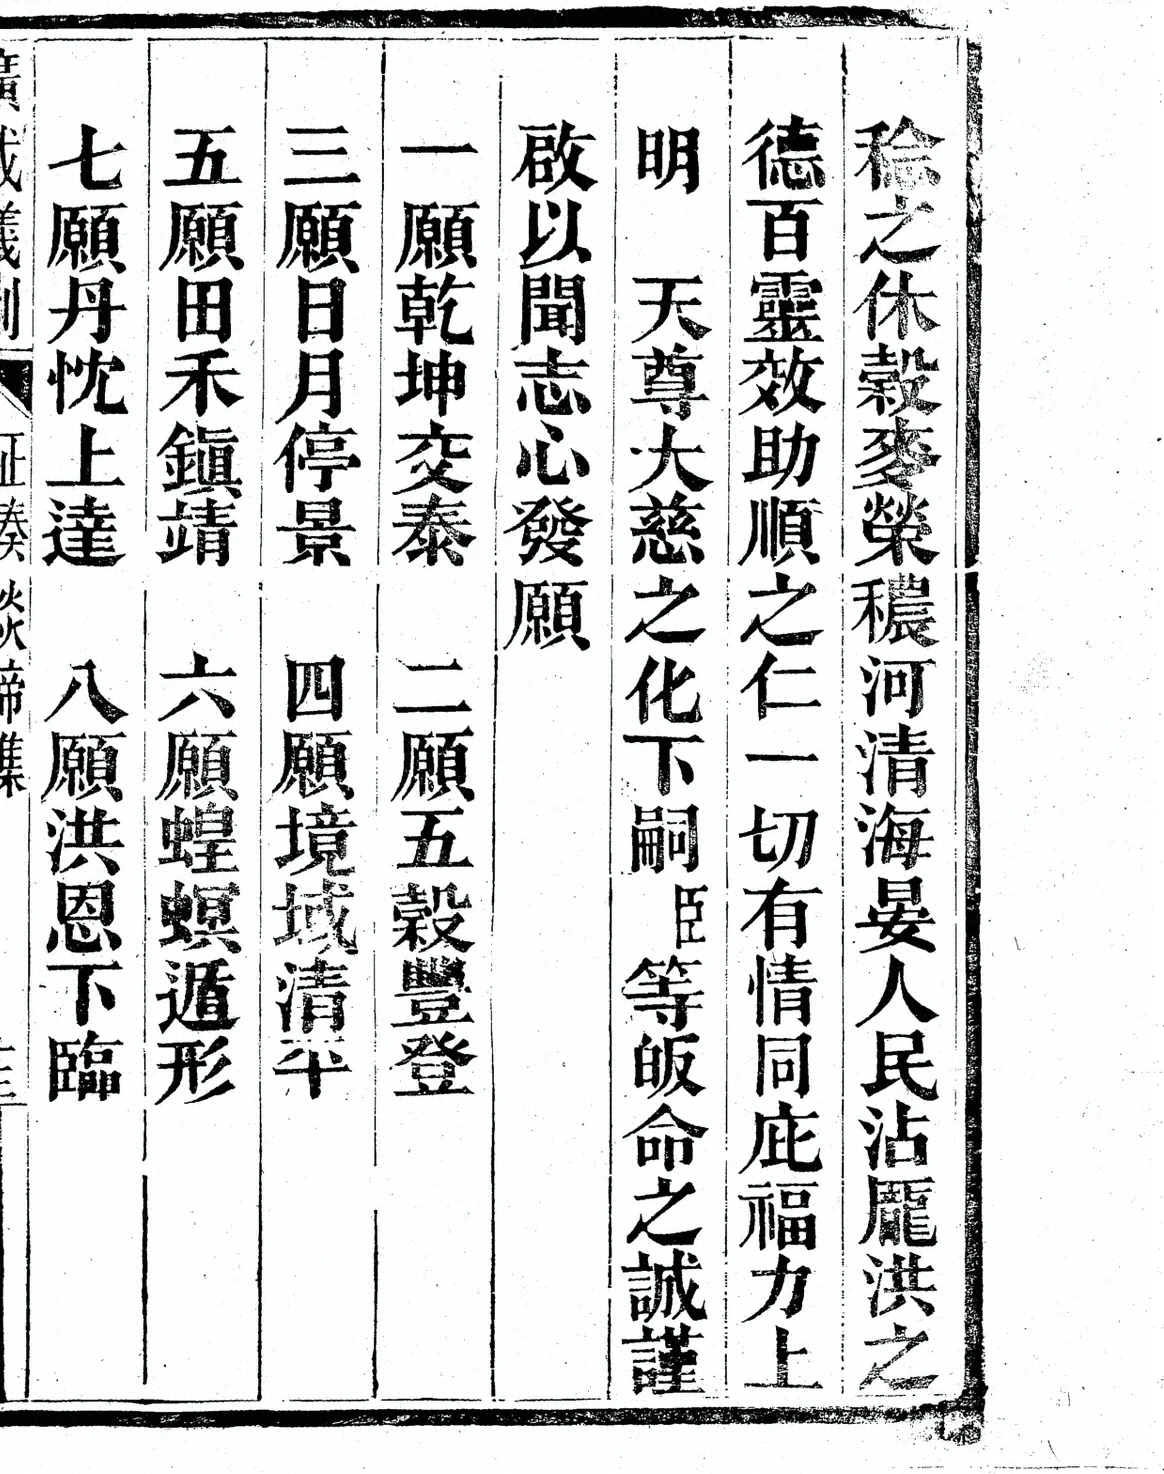 稔之休穀麥榮穠河清海晏人民沾龎洪之
德百靈效助順之仁一切有情同庇福力上
明　天尊大慈之化下嗣臣等皈命之誠謹
啟以聞志心發願
一願乾坤交泰　二願五穀豐登
三願日月停景　四願境域清平
五願田禾鎮靖　六願蝗螟遁形
七願丹忱上達　八願洪恩下臨
廣成儀制